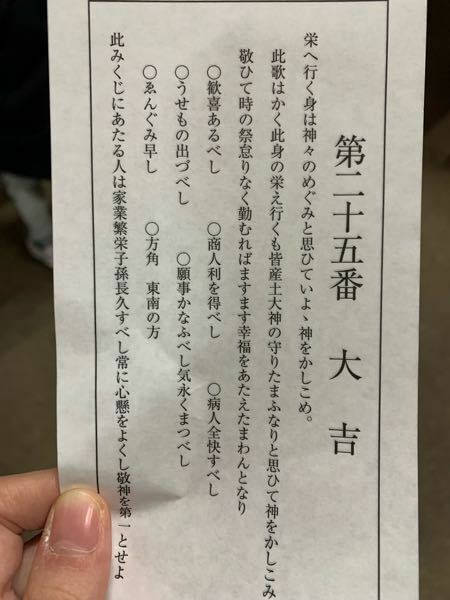 第二十五番 大吉
栄へ行く身は神々のめぐみと思ひていよゝ神をかしこめ。
此歌はかく此身の栄え行くも皆産土大神の守りたまふなりと思ひて神をかしこみ
敬ひて時の祭怠りなく勤むればますます幸福をあたえたまわんとなり
〇歓喜あるべし 〇商人利を得べし 〇病人全快すべし
〇うせもの出づべし 〇願事かなふべし気永くまつべし
〇ゑんぐみ早し 〇方角 東南の方
此みくじにあたる人は家業繁栄子孫長久すべし常に心懸をよくし敬神を第一とせよ